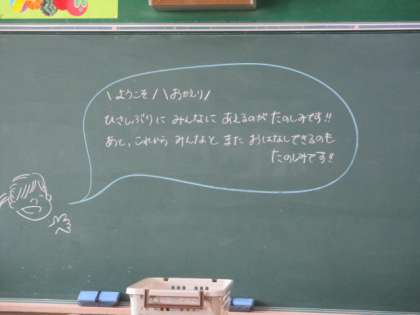 \ようこそ/\おかえり/
ひさしぶりに みんなに あえるのが たのしみです!!
あと、これから みんなと また おはなしできるのも
たのしみです!!